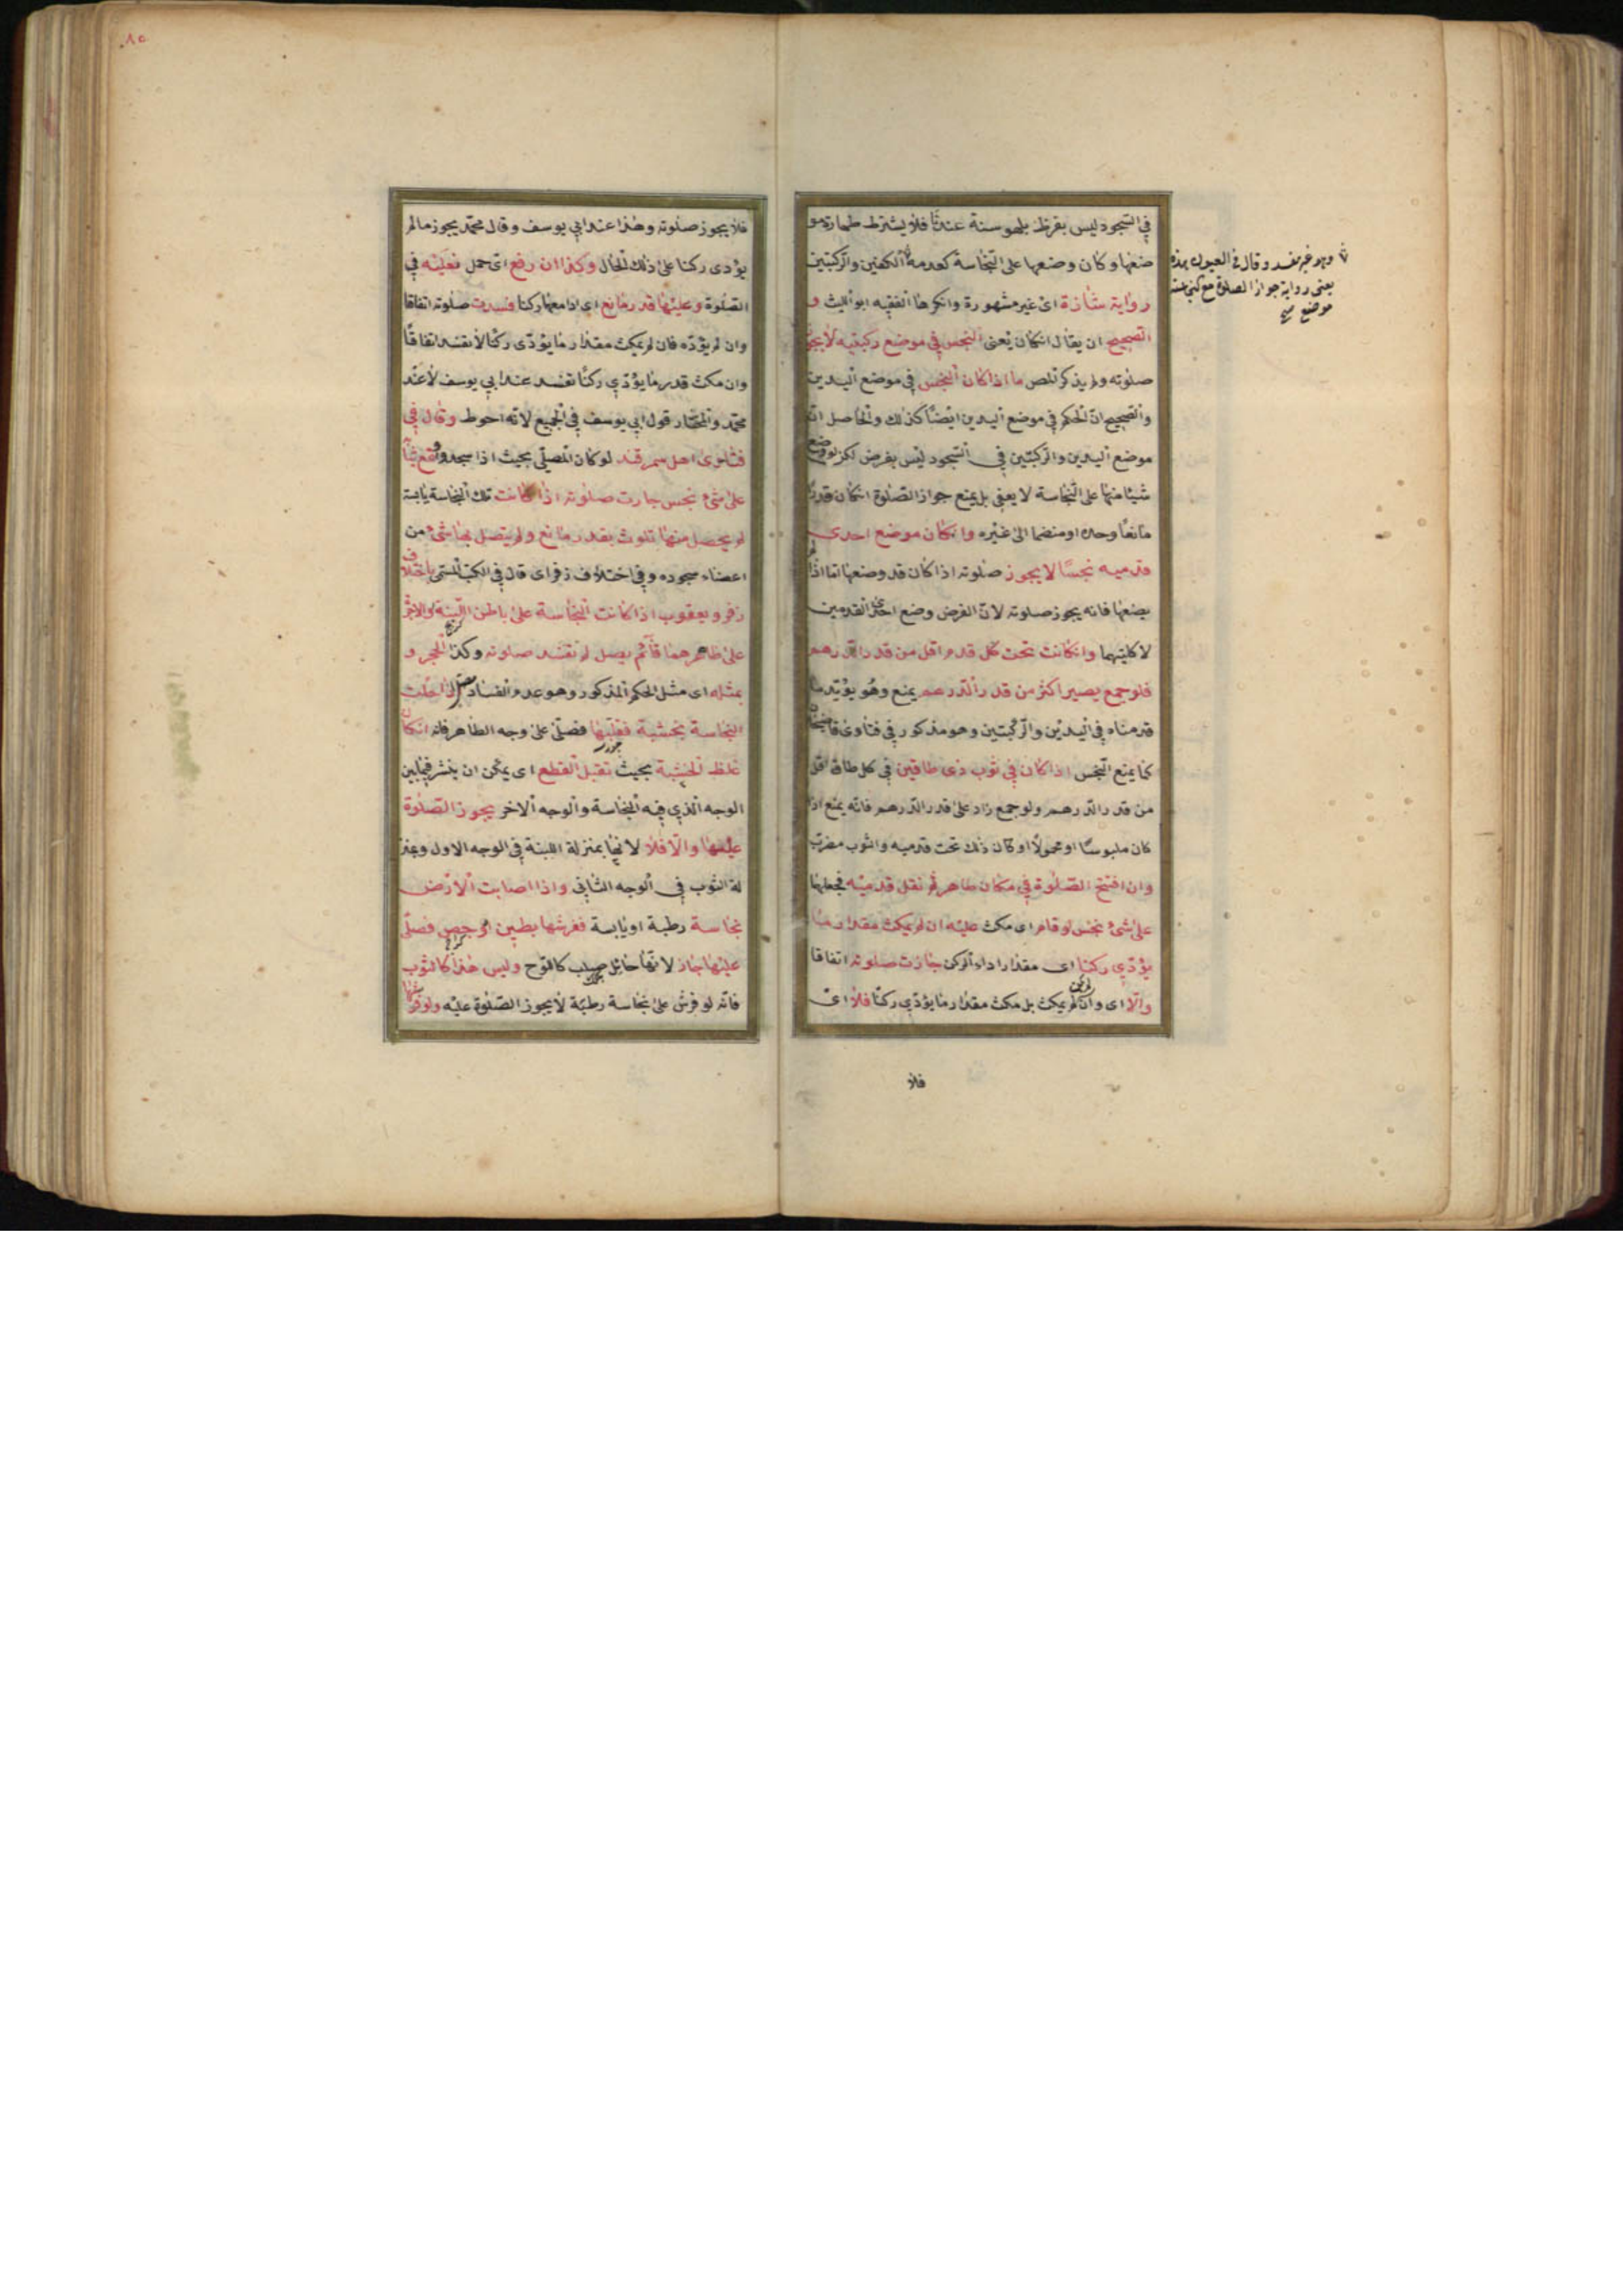 في السجود ليس بفرض بل هو سنة عندنا فلا يشترط طهارة مو
ضعها وكان وضعها على النجاسة كعدمه الكفين والركبتين
رواية شاذة اى غير مشهورة وانكرها الفقيه ابو الليث و
الصحيح ان يقال انكان يعنى النجس في موضع ركبتيه لا يجوز
صلوته ولم يذكر المص ما اذا كان النجس في موضع اليدين
والصحيح ان الحكم في موضع اليدين ايضا كذلك والحاصل ان
موضع اليدين والركبتين في السجود ليس بفرض لكن لو وضع
شيئا منها على النجاسة لا يعفى بل يمنع جواز الصلوة انكان قدرا
مانعا وحده او منضما الى غيره وانكان موضع احدى
قدميه نجسا لا يجوز صلوته اذا كان قد وضعها اما اذا لم
يضعها فانه يجوز صلوته لان الفرض وضع احدى القدمين
لا كليتهما وانكانت تحت كل قدم اقل من قدر الدرهم
فلو جمع يصير اكثر من قدر الدرهم يمنع وهو يؤيد ما
قدمناه في اليدين والركبتين وهو مذكور في فتاوى قاضيخان
كما يمنع النجس اذا كان في ثوب ذى طاقين في كل طاق اقل
من قدر الدرهم ولو جمع زاد على قدر الدرهم فانه يمنع اذا
كان ملبوسا او محمولا او كان ذلك تحت قدميه والثوب مضرب
وان افتتح الصلوة في مكان طاهر ثم نقل قدميه فجعلها
على شئ نجس لو قام اى مكث عليه ان لم يمكث مقدار ما
يؤدي ركنا اى مقدار اداء الركن جازت صلوته اتفاقا
والا اى وان لم يكن لم يمكث بل مكث مقدار ما يؤدي ركنا فلا اى
فلا
وهو غير مفسد وقال في العيون هذه
يعنى رواية جواز الصلوة مع
موضع صح
٨٥
فلا يجوز صلوته وهذا عند ابي يوسف وقال محمد يجوز ما لم
يؤدى ركنا على ذلك الحال وكذا ان رفع اى حمل نعليه في
الصلوة وعليها قدر مانع اى ادا معها ركنا فسدت صلوته اتفاقا
وان لم يؤده فان لم يمكث مقدار ما يؤدى ركنا لا تفسد اتفاقا
وان مكث قدر ما يؤدي ركنا تفسد عند ابي يوسف لا عند
محمد والمختار قول ابي يوسف في الجميع لانه احوط وقال في
فتاوى اهل سمرقند لو كان المصلي بحيث اذا سجد وقع ثيابه
على شئ نجس جازت صلوته اذا كانت تلك النجاسة يابسة
لم يحصل منها تلوث بقدر مانع ولم يتصل بها شئ من
اعضاء سجوده وفي اختلاف زفر اى قال في الكتب المسمى باختلاف
زفر ويعقوب اذا كانت النجاسة على باطن اللبنة او الاجر
على ظاهرهما قائم يصل لم تفسد صلوته وكذا الحجر و
بمثله اى مثل الحكم المذكور وهو عدم الفساد اذا حلت
النجاسة بخشبة فقلبها فصلى على وجه الطاهر فانه انكان
غلظ الخشبة بحيث تقبل القطع اى يمكن ان ينشر فيما بين
الوجه الذي فيه النجاسة والوجه الاخر يجوز الصلوة
عليها والا فلا لانها بمنزلة اللبنة في الوجه الاول وبمنز
لة الثوب في الوجه الثاني واذا اصابت الارض
نجاسة رطبة او يابسة ففرشها بطين او جص فصلى
عليها جاز لانها حائل صلب كاللوح وليس هذا كالثوب
فانه لو فرش على نجاسة رطبة لا يجوز الصلوة عليه ولو فرشها